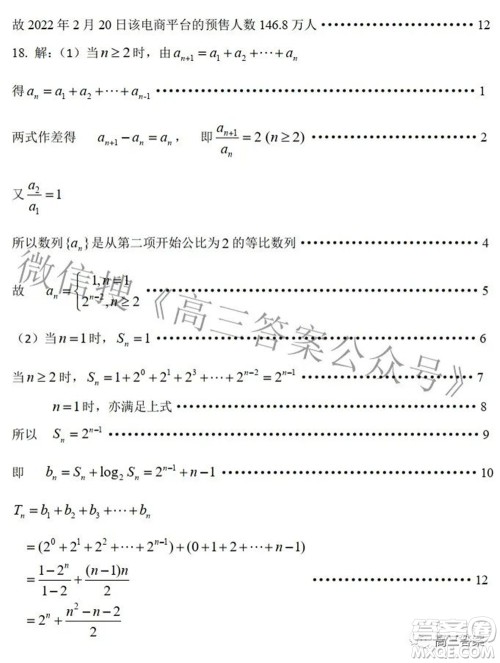 故 2022 年 2 月 20 日该电商平台的预售人数 146.8 万人 ·················· 12
18. 解：（1）当 n ≥ 2 时，由 a_{n+1} = a_1 + a_2 + ··· + a_n
得 a_n = a_1 + a_2 + ··· + a_{n-1} ·················· 1
两式作差得 a_{n+1} − a_n = a_n， 即 a_{n+1}/a_n = 2 (n ≥ 2) ·················· 2
又 a_2/a_1 = 1
所以数列{a_n}是从第二项开始公比为 2 的等比数列 ·················· 4
故 a_n = { 1, n = 1
2^{n-2}, n ≥ 2 ·················· 5
（2）当 n = 1 时，S_n = 1 ·················· 6
当 n ≥ 2 时，S_n = 1 + 2^0 + 2^1 + 2^3 + ··· + 2^{n−2} = 2^{n−1} ·················· 7
n = 1 时，亦满足上式 ·················· 8
所以 S_n = 2^{n−1} ·················· 9
即 b_n = S_n + log_2 S_n = 2^{n−1} + n − 1 ·················· 10
T_n = b_1 + b_2 + b_3 + ··· + b_n
= (2^0 + 2^1 + 2^2 + ··· + 2^{n−1}) + (0 + 1 + 2 + ··· + n − 1)
= (1 − 2^n)/(1 − 2) + (n − 1)n/2 ·················· 12
= 2^n + (n^2 − n − 2)/2
微信搜《高三答案公众号》
高三答案
MXQE.COM